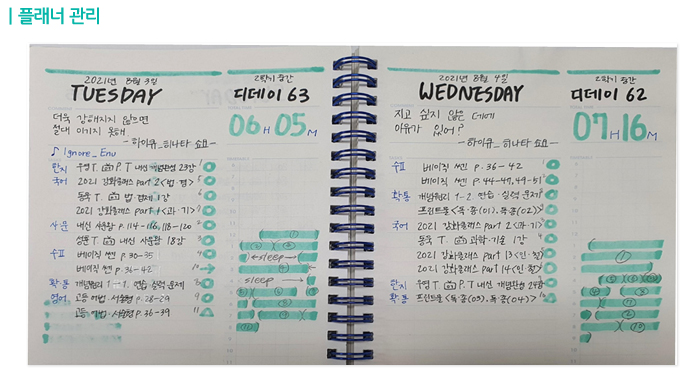 | 플래너 관리
2021년 8월 3일
TUESDAY
2학기 중간
디데이 63
06H 05M
더욱 강해지지 않으면
절대 이기지 못해.
- 하이큐_히나타 쇼요 -
♪ Ignore_Env
한지 우영T. P.T 내신 개념완성 23강 1
국어 2021 강화클래스 part 2 <법·경> 5
동욱 T. 법·경제 1강 6
2021 강화클래스 part 4 <과·기> 7
사문 내신 사문황 p.114-116, 118-120 2
성훈 T. 내신 사문황 18강 3
수표 베이직 쎈 p.30-35 4
베이직 쎈 p.36-42
확통 개념원리 1-1. 연습·실력 문제 8
영어 고등 어법·서술형 p.28-29 9
고등 어법·서술형 p.36-39 11
sleep
sleep
2021년 8월 4일
WEDNESDAY
2학기 중간
디데이 62
07H 16M
지고 싶지 않은 데에
이유가 있어?
- 하이큐_히나타 쇼요 -
수표 베이직 쎈 p.36-42
베이직 쎈 p.44-47, 49-51
확통 개념원리 1-2. 연습·실력 문제
프린트물 <독·중(01), 독·중(02)>
국어 2021 강화클래스 part 2 <과·기>
동욱 T. 과학·기술 1강
2021 강화클래스 part 13 <인·철>
2021 강화클래스 part 14 <인·철>
한지 우영 T. P.T 내신 개념완성 24강
확통 프린트물 <독·중(03), 독·중(04)>